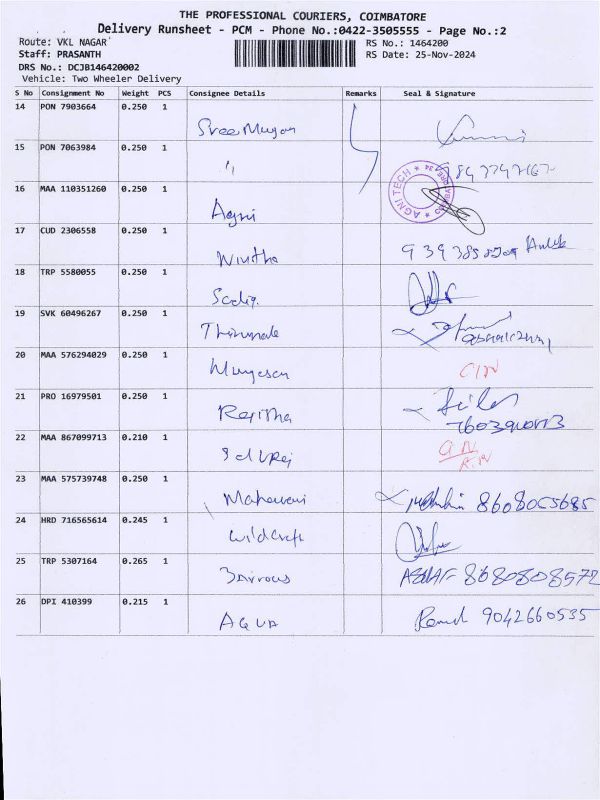 THE PROFESSIONAL COURIERS, COIMBATORE
Delivery Runsheet - PCM - Phone No.:0422-3505555 - Page No.:2
Route: VKL NAGAR
Staff: PRASANTH
DRS No.: DCJB146420002
Vehicle: Two Wheeler Delivery
RS No.: 1464200
RS Date: 25-Nov-2024
S No Consignment No Weight PCS Consignee Details Remarks Seal & Signature
14 PON 7903664 0.250 1
15 PON 7063984 0.250 1 "
16 MAA 110351260 0.250 1 Agni AGNI TECH
17 CUD 2306558 0.250 1
18 TRP 5580055 0.250 1 Sadiq
19 SVK 60496267 0.250 1
20 MAA 576294029 0.250 1 Murugesan
21 PRO 16979501 0.250 1 Rejitha
22 MAA 867099713 0.210 1
23 MAA 575739748 0.250 1 8608065685
24 HRD 716565614 0.245 1 wildcraft
25 TRP 5307164 0.265 1 8680808572
26 DPI 410399 0.215 1 AQUA 9042660535